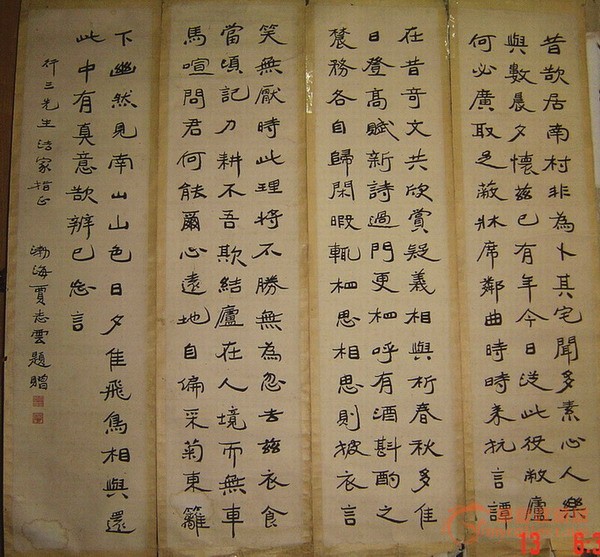 昔欲居南村非為卜其宅聞多素心人樂
與數晨夕懷茲已有年今日從此役敝廬
何必廣取足蔽牀席鄰曲時時來抗言譚
在昔奇文共欣賞疑義相與析春秋多佳
日登高賦新詩過門更相呼有酒斟酌之
農務各自歸閑暇輒相思相思則披衣言
笑無厭時此理將不勝無為忽去茲衣食
當須記力耕不吾欺結廬在人境而無車
馬喧問君何能爾心遠地自偏采菊東籬
下幽然見南山山色日夕佳飛鳥相與還
此中有真意欲辨已忘言
行三先生法家指正
渤海賈志雲題贈
13 6:3